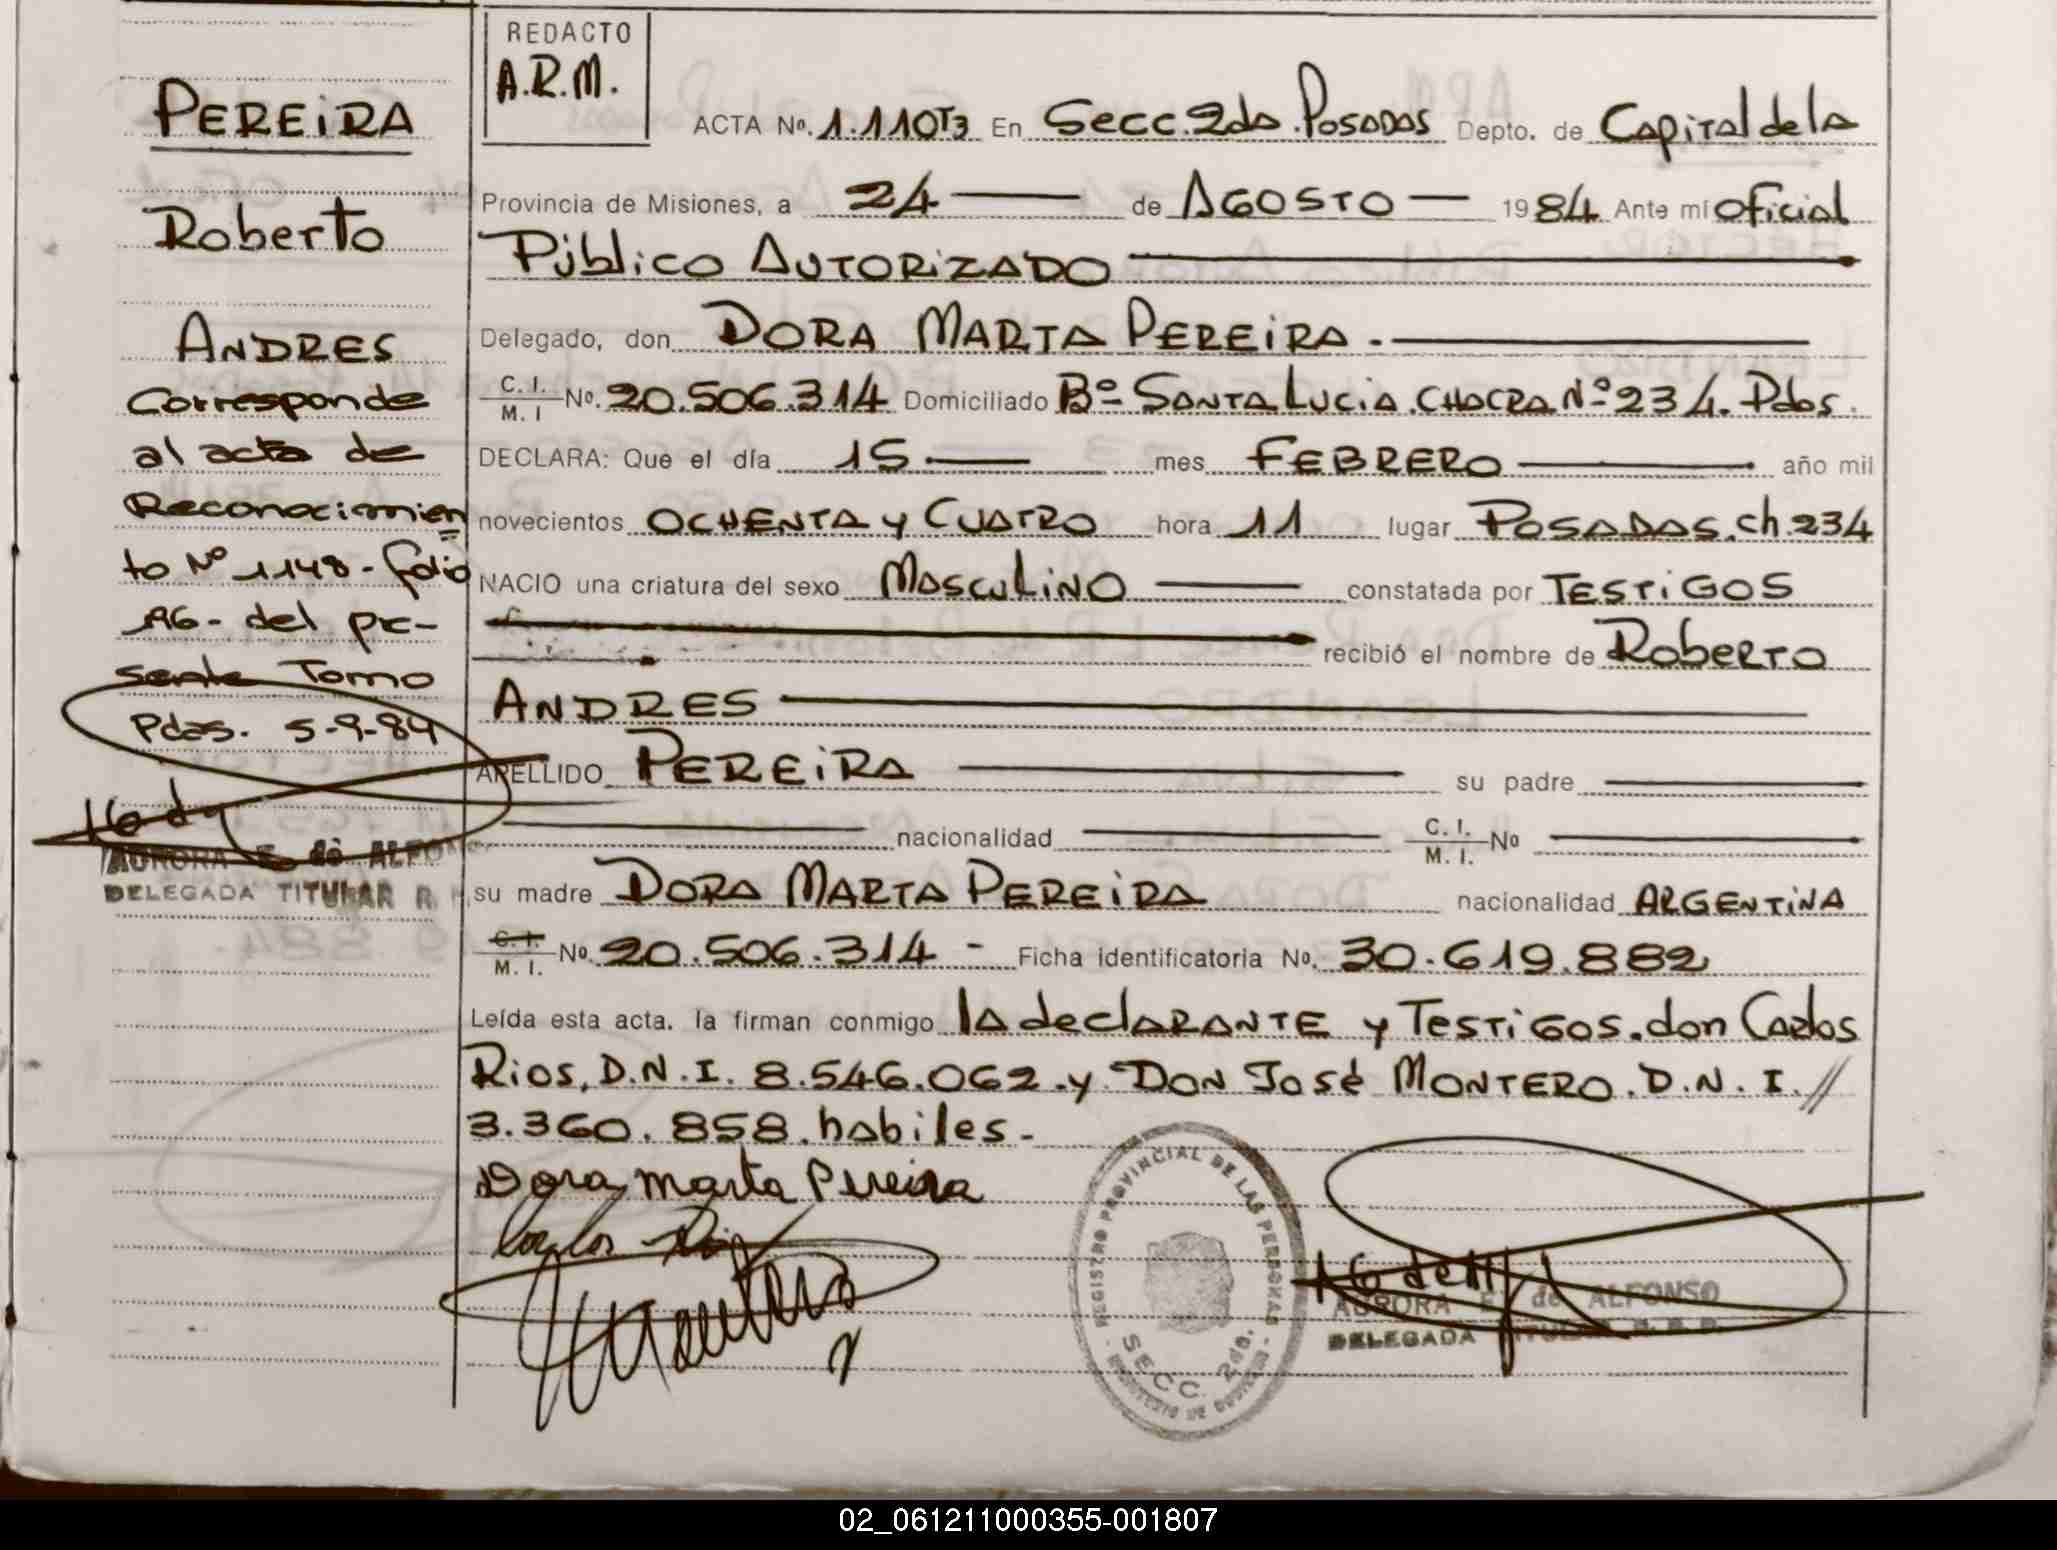 REDACTO
A.R.M.
PEREIRA
Roberto
ANDRES
Corresponde
al acta de
Reconocimien
to Nº 1148 - folio
196 - del pre-
sente Tomo
Pdas. 5-9-84
AURORA E. de ALFONSO
DELEGADA TITULAR R.
ACTA Nº. 1.110T3 En Secc. 2da. POSADAS Depto. de Capital de la
Provincia de Misiones, a 24 de AGOSTO 1984 Ante mi Oficial
Público AUTORIZADO
Delegado, don DORA MARTA PEREIRA.
C. I. / M. I Nº. 20.506.314 Domiciliado Bº SANTA LUCIA. CHACRA Nº 234. Pdas.
DECLARA: Que el día 15 mes FEBRERO año mil
novecientos OCHENTA y CUATRO hora 11 lugar POSADAS. ch. 234
NACIO una criatura del sexo MASCULINO constatada por TESTIGOS
recibió el nombre de Roberto
ANDRES
APELLIDO PEREIRA su padre
nacionalidad C. I. / M. I. Nº
su madre DORA MARTA PEREIRA nacionalidad ARGENTINA
C. I. / M. I. Nº. 20.506.314 - Ficha identificatoria Nº. 30.619.882
Leída esta acta. la firman conmigo la declARANTE y TESTIGOS. don Carlos
Rios, D.N.I. 8.546.062 y DON José MONTERO. D.N.I. //
3.360.858. habiles.
Dora Marta Pereira
REGISTRO PROVINCIAL DE LAS PERSONAS
SECC. 2da.
AURORA E. de ALFONSO
DELEGADA TITULAR R. P.
02_061211000355-001807